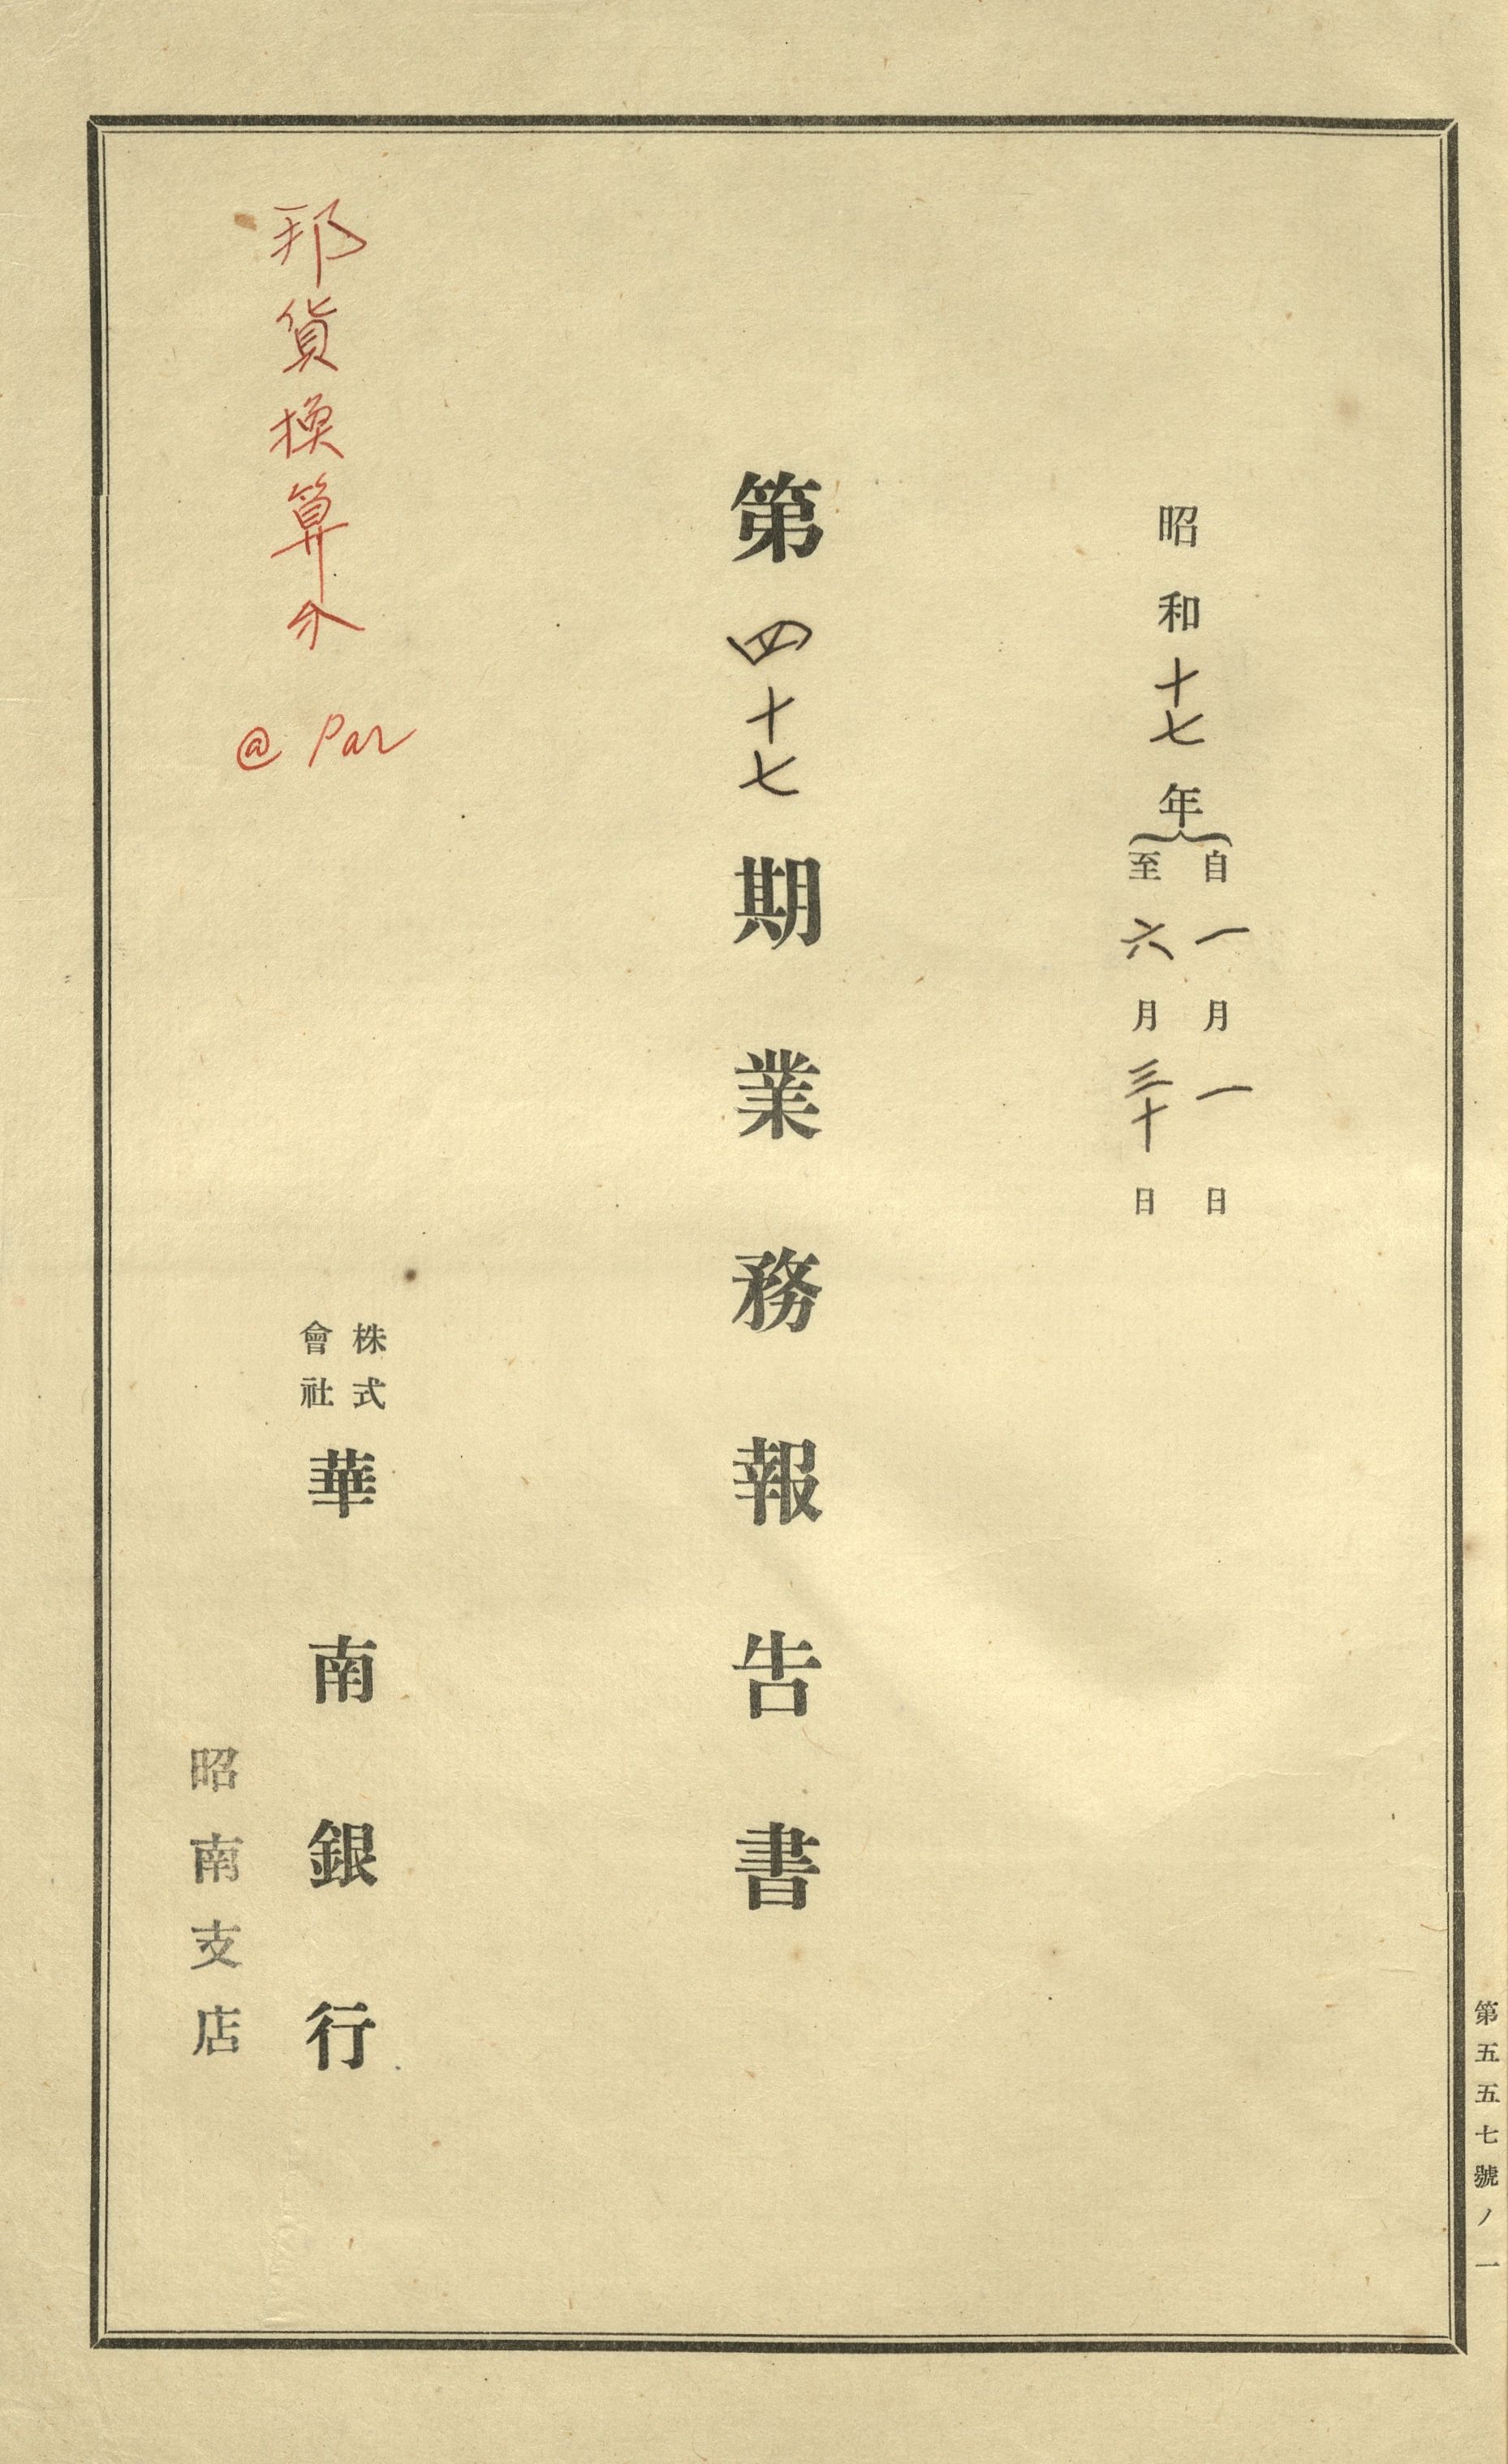 昭和十七年
自一月一日
至六月三十日
第四十七期業務報告書
株式
會社
華南銀行
昭南支店
邦貨換算分
@ Par
第五五七號ノ一